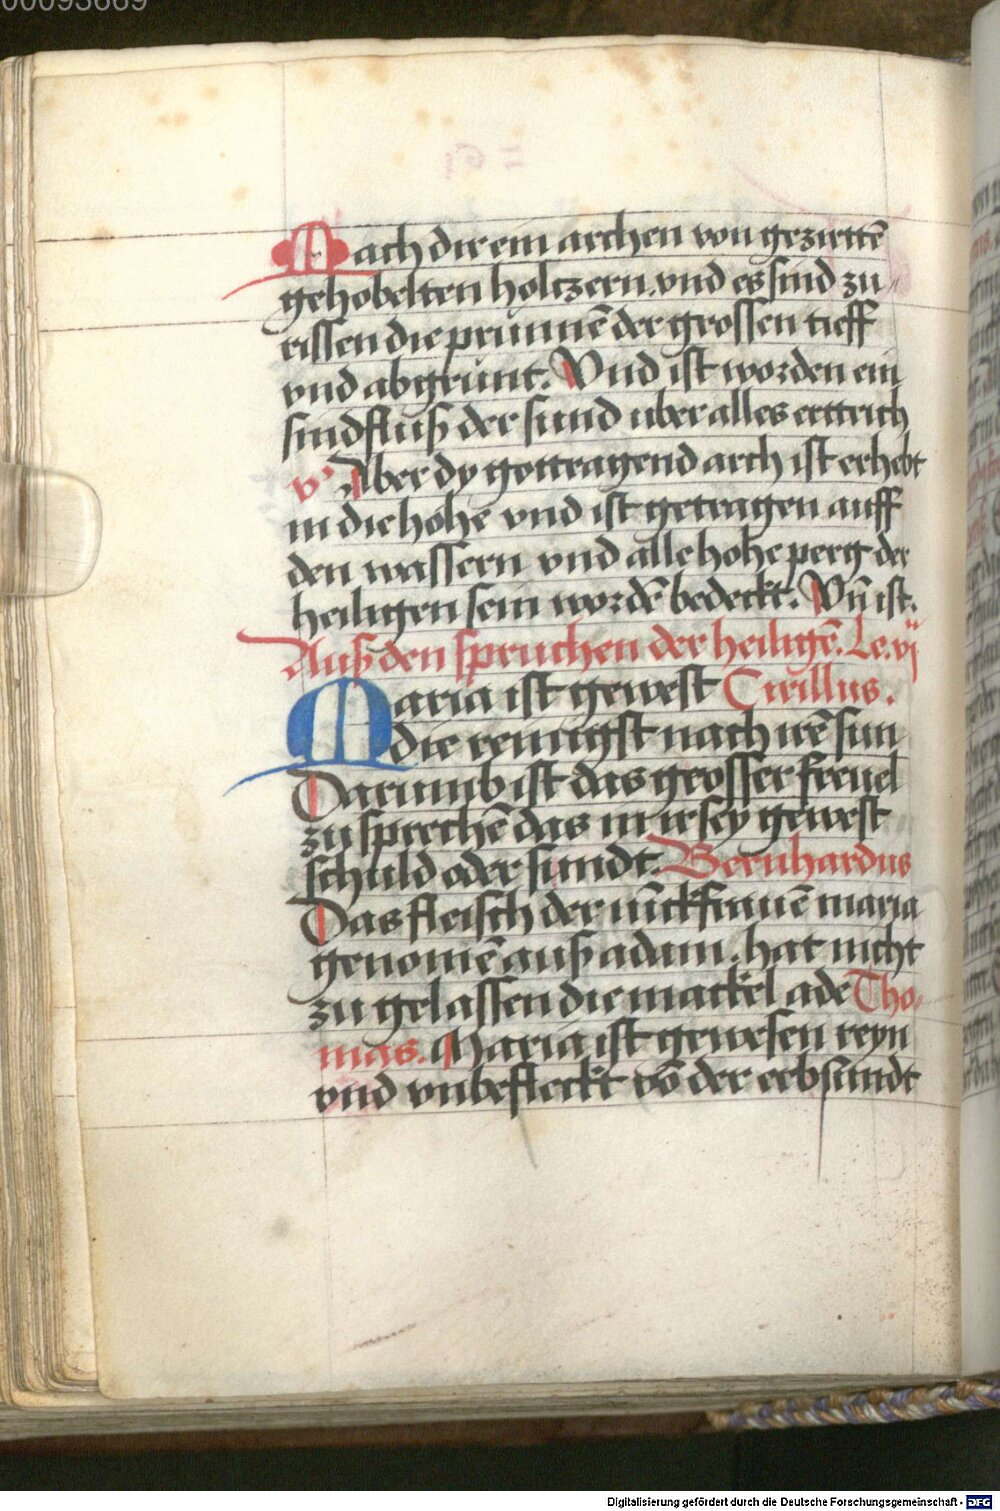 00093669
Mach dir ein archen von gezirttē
gehobelten holtzern. vnd es sind zu
rissen die prunnē der grossen tieff
vnd abgrunt. Vnd ist worden ein
sindfluß der sund uber alles ertrich
v° Aber dy gottragend arch ist erhebt
in die hohe vnd ist getragen auff
den wassern vnd alle hohe perg der
heiligen sein wordē bedeckt. Vn̄ ist.
Auß den spruchen der heiligē. Le. vj
Maria ist gewest Cirillus.
die reinigst nach irē sun
Darumb ist das grosser freuel
zu sprechē das in ir sey gewest
schuld oder sundt. Bernhardus
Das fleisch der iūckfrauē maria
genomē auß adam. hat nicht
zu gelassen die mackel ade Tho
mas. Maria ist gewesen reyn
vnd vnbefleckt vō der erbsundt
Digitalisierung gefördert durch die Deutsche Forschungsgemeinschaft - DFG